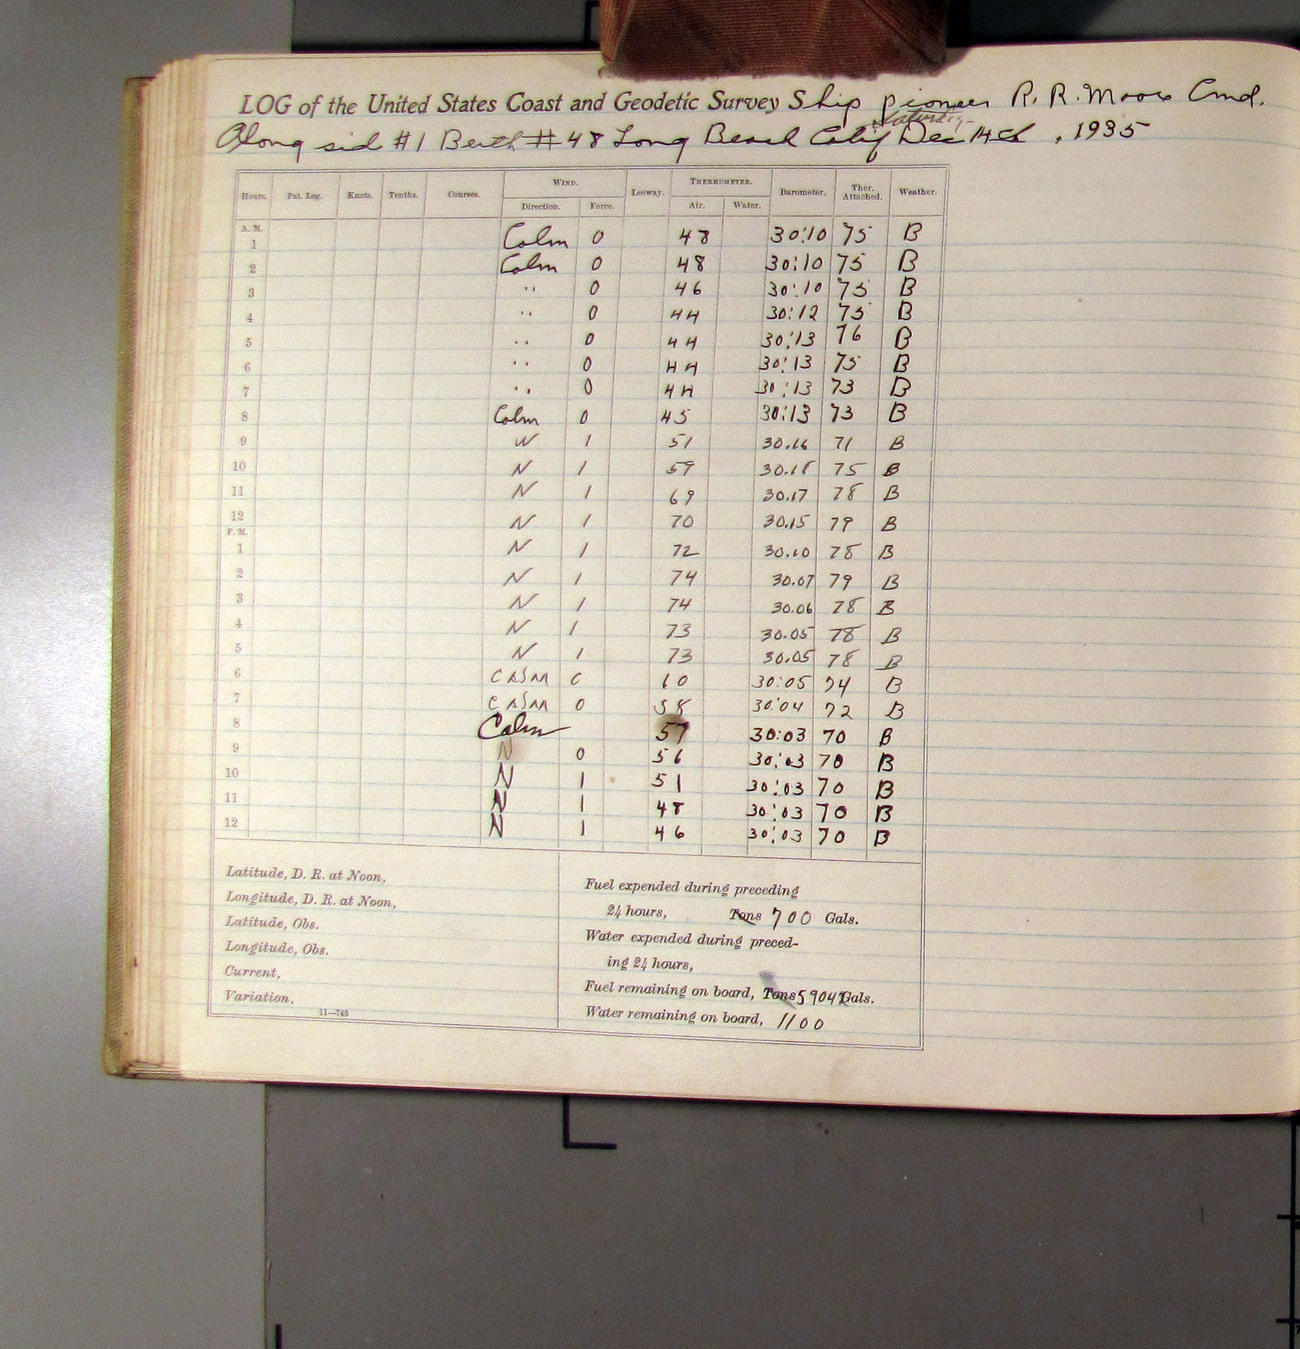 LOG of the United States Coast and Geodetic Survey Ship Pioneer R. R. Moore Cmd.
Saturday
Along sid #1 Berth #48 Long Beach Calif Dec 14th, 1935
Hours. Pat. Log. Knots. Tenths. Courses. WIND. Direction. Force. Leeway. THERMOMETER. Air. Water. Barometer. Ther. Attached. Weather.
A. M.
1 Calm 0 48 30:10 75 B
2 Calm 0 48 30:10 75 B
3 " 0 46 30:10 75 B
4 " 0 44 30:12 75 B
5 " 0 44 30:13 76 B
6 " 0 44 30:13 75 B
7 " 0 44 30:13 73 B
8 Calm 0 45 30:13 73 B
9 W 1 51 30.16 71 B
10 N 1 59 30.18 75 B
11 N 1 69 30.17 78 B
12 N 1 70 30.15 79 B
P. M.
1 N 1 72 30.10 78 B
2 N 1 74 30.07 79 B
3 N 1 74 30.06 78 B
4 N 1 73 30.05 78 B
5 N 1 73 30.05 78 B
6 CALM 0 60 30:05 74 B
7 CALM 0 58 30:04 72 B
8 Calm 57 30:03 70 B
9 N 0 56 30:03 70 B
10 N 1 51 30:03 70 B
11 N 1 48 30:03 70 B
12 N 1 46 30:03 70 B
Latitude, D. R. at Noon,
Longitude, D. R. at Noon,
Latitude, Obs.
Longitude, Obs.
Current,
Variation,
11—743
Fuel expended during preceding
24 hours, Tons 700 Gals.
Water expended during preced-
ing 24 hours,
Fuel remaining on board, Tons Gals.
Water remaining on board, 1100